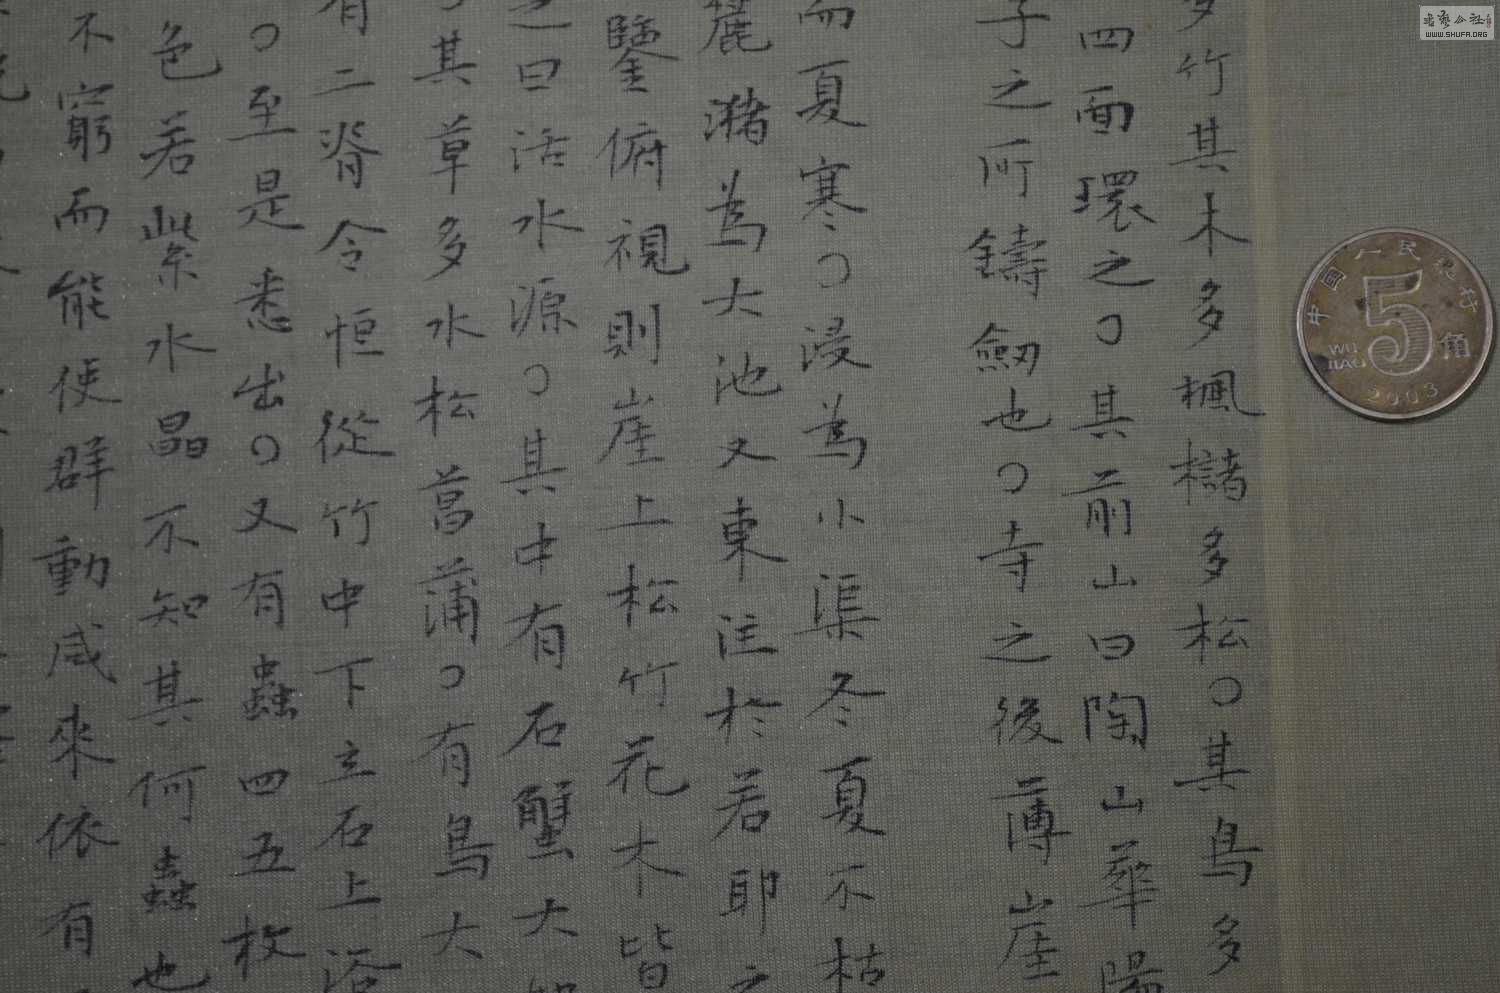 多竹其木多楓櫧多松○其鳥多
四面環之○其前山曰陶山華陽
子之所鑄劔也○寺之後薄山崖
而夏寒○浸為小渠冬夏不枯
麓瀦為大池又東注於若耶之
鑒俯視則崖上松竹花木皆
之曰活水源○其中有石蟹大
其草多水松菖蒲○有鳥大
有二脊令恒從竹中下立石上浴
○至是悉出○又有蟲四五枚
色若紫水晶不知其何蟲也
不窮而能使群動咸來依有
中國人民銀行
5
角
WU JIAO
2003
書藝公社
WWW.SHUFA.ORG